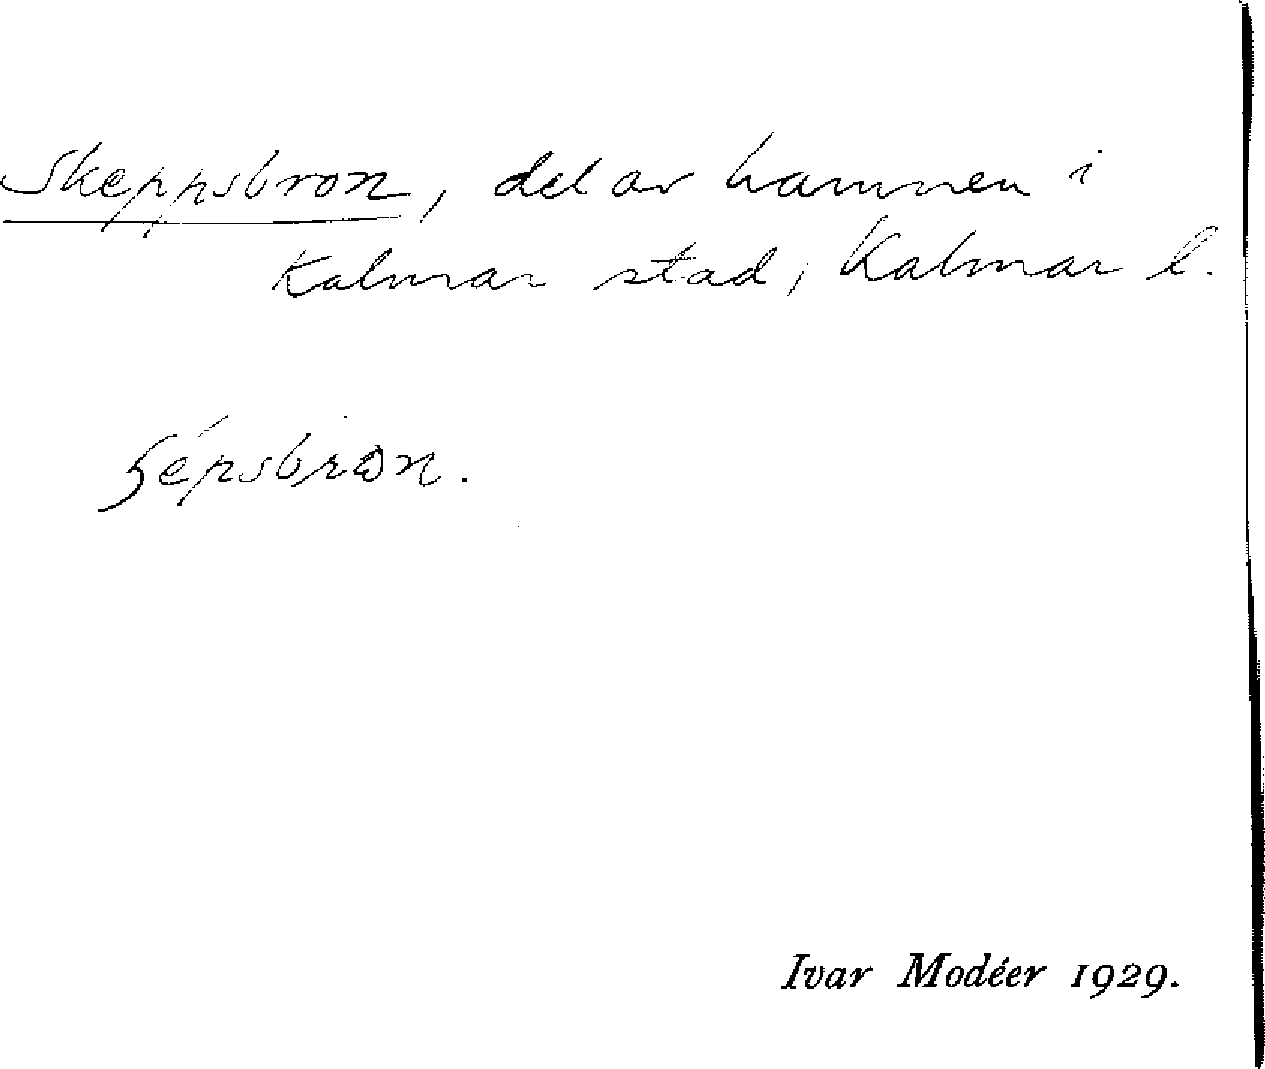 Skeppsbron, del av hamnen i
Kalmar stad, Kalmar l.
Ivar Modéer 1929.